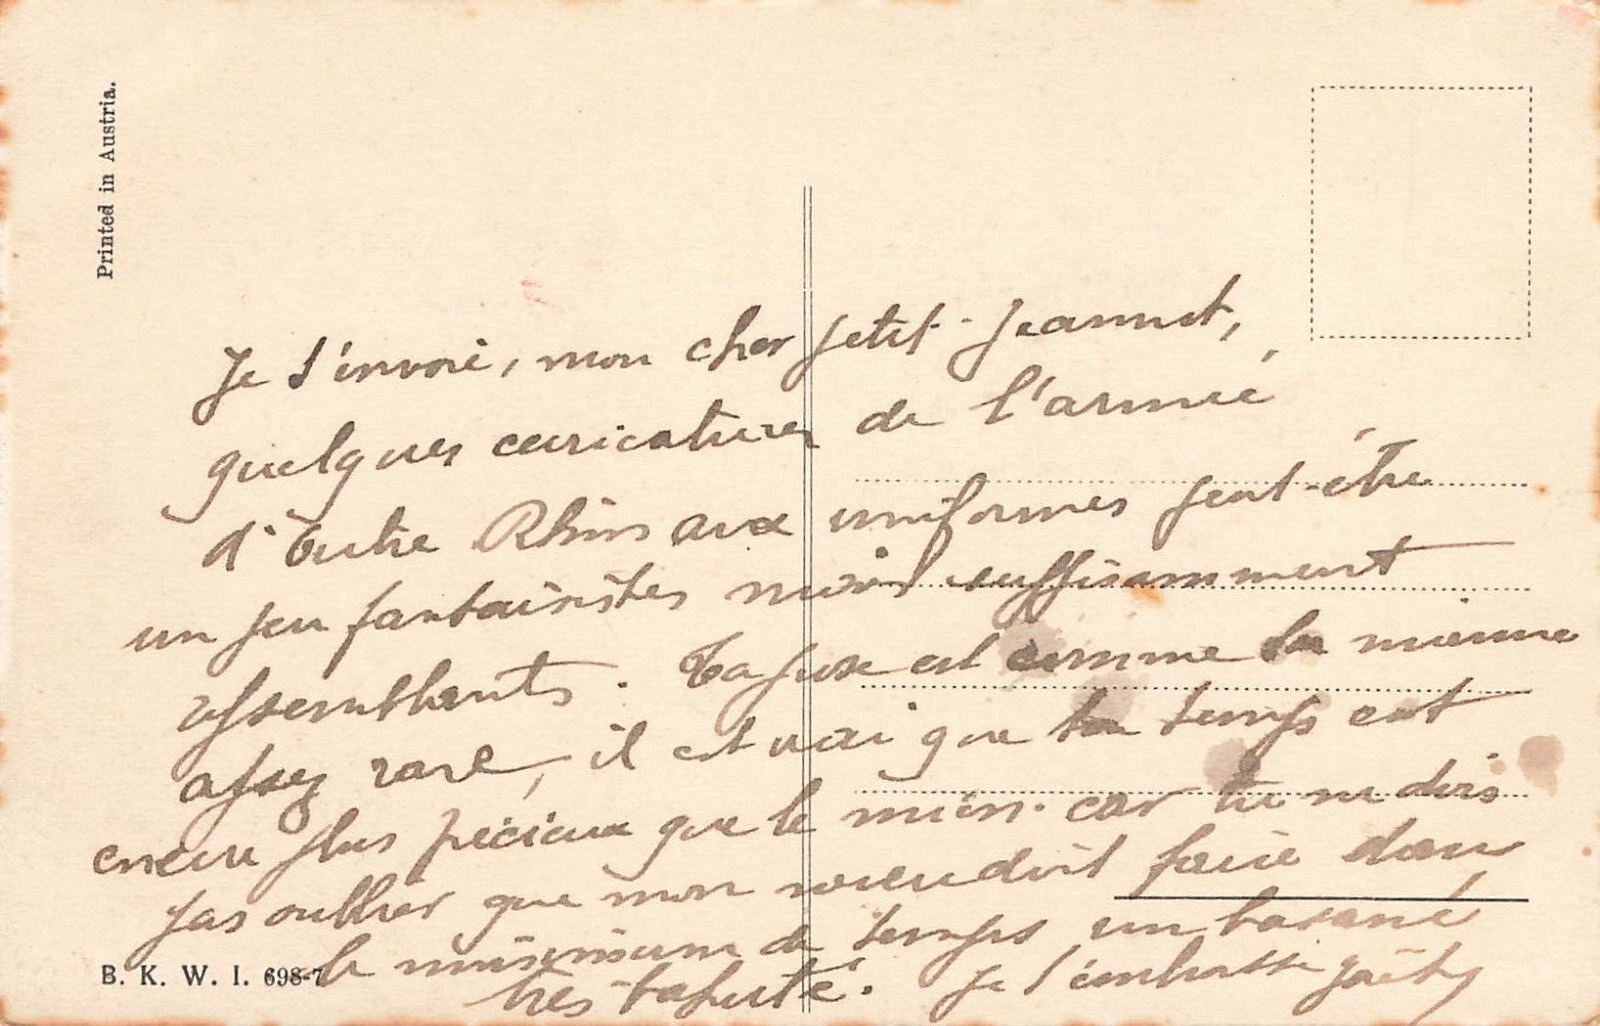 Printed in Austria.
Je t'envoie, mon cher petit Jeannot,
quelques caricatures de l'armée
d'Outre Rhin aux uniformes peut-être
un peu fantaisistes mais suffisamment
ressemblants. Ta prose est comme la mienne
assez rare, il est vrai que ton temps est
encore plus précieux que le mien. car tu ne dois
pas oublier que mon neveu doit faire dans
le minimum de temps un basané
très réputé. Je t'embrasse
B. K. W. I. 698-7